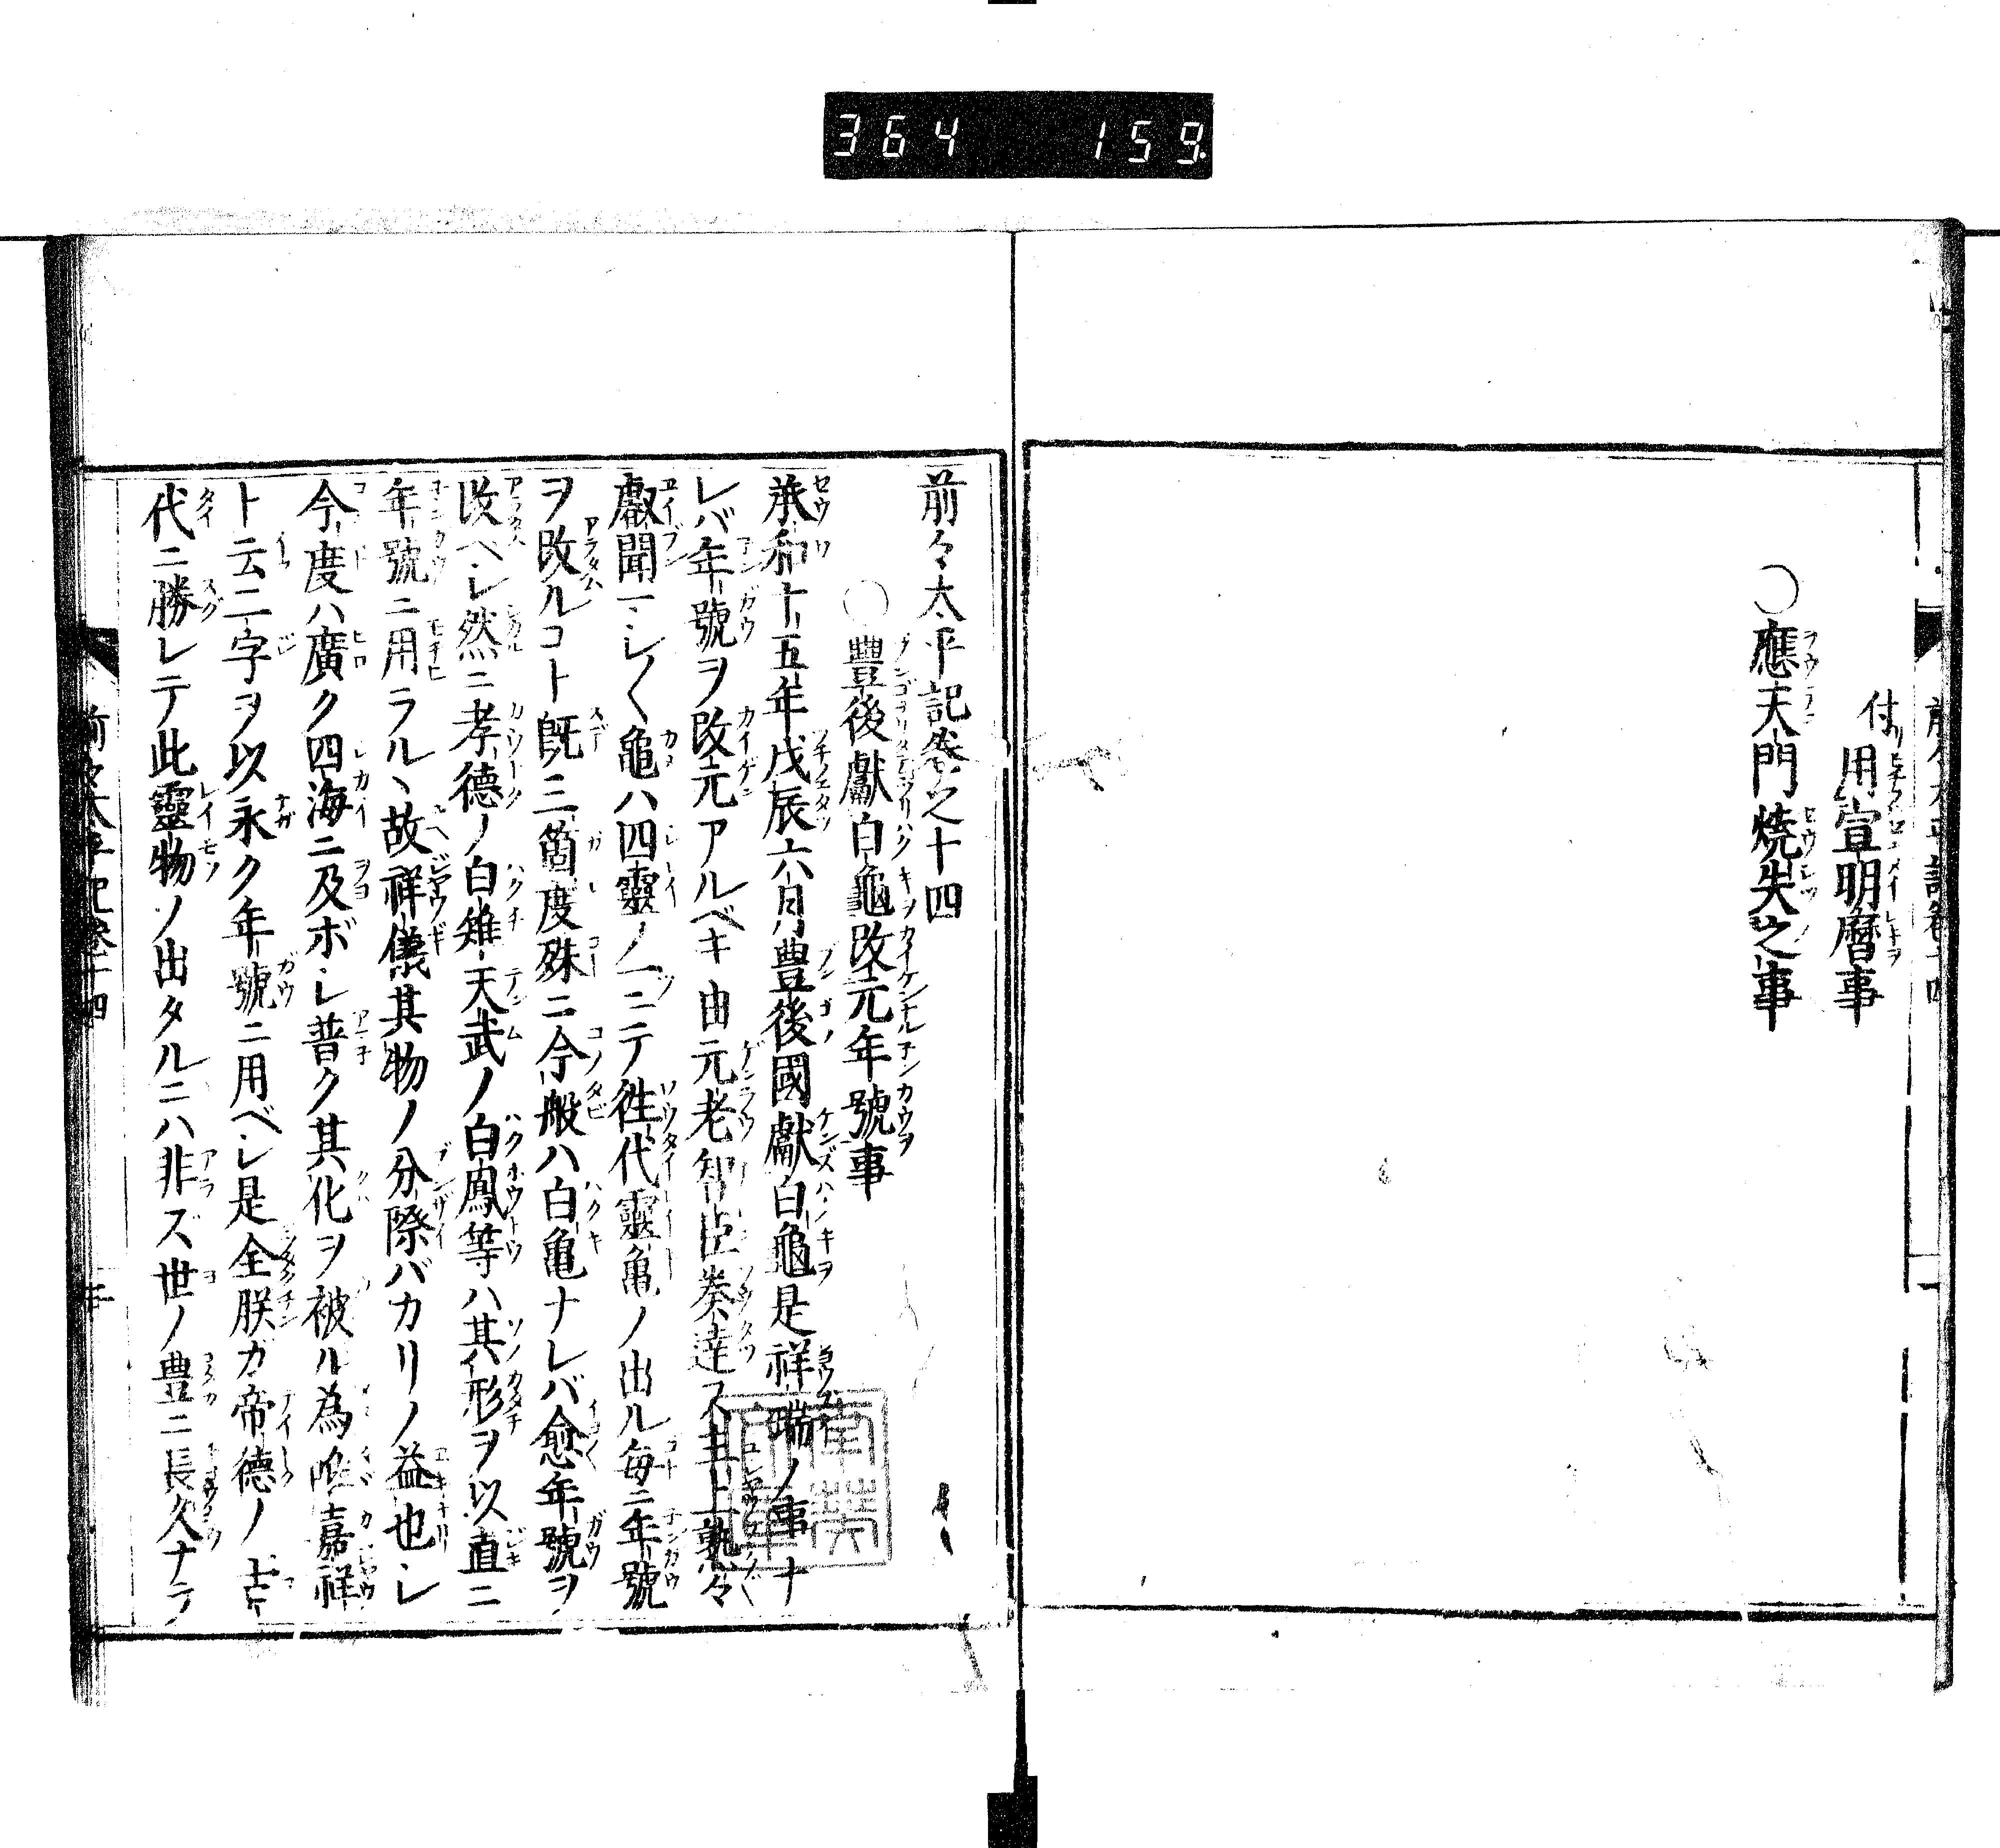 364 159
付リ用宣明暦事
○應天門燒失之事
前々太平記卷之十四
○豐後獻白龜改元年號事
承和十五年戊辰六月豊後國獻白龜是祥瑞ノ事ナ
レバ年號ヲ改元アルベキ由元老智臣奏達ス主上熟々
叡聞一シ〱龜ハ四靈ノ一ニテ徃代靈亀ノ出ル毎ニ年號
ヲ改ルコト既三箇度殊ニ今般ハ白亀ナレバ愈年號ヲ
改ベシ然ニ孝德ノ白雉天武ノ白鳳等ハ其形ヲ以直ニ
年號ニ用ラル丶故祥儀其物ノ分際バカリノ益也シ
今度ハ廣ク四海ニ及ボシ普ク其化ヲ被ル為唯嘉祥
ト云二字ヲ以永ク年號ニ用ベシ是全朕ガ帝德ノ古
代ニ勝レテ此靈物ソ出タルニハ非ズ世ノ豊ニ長久ナラ
前々太平記卷十四